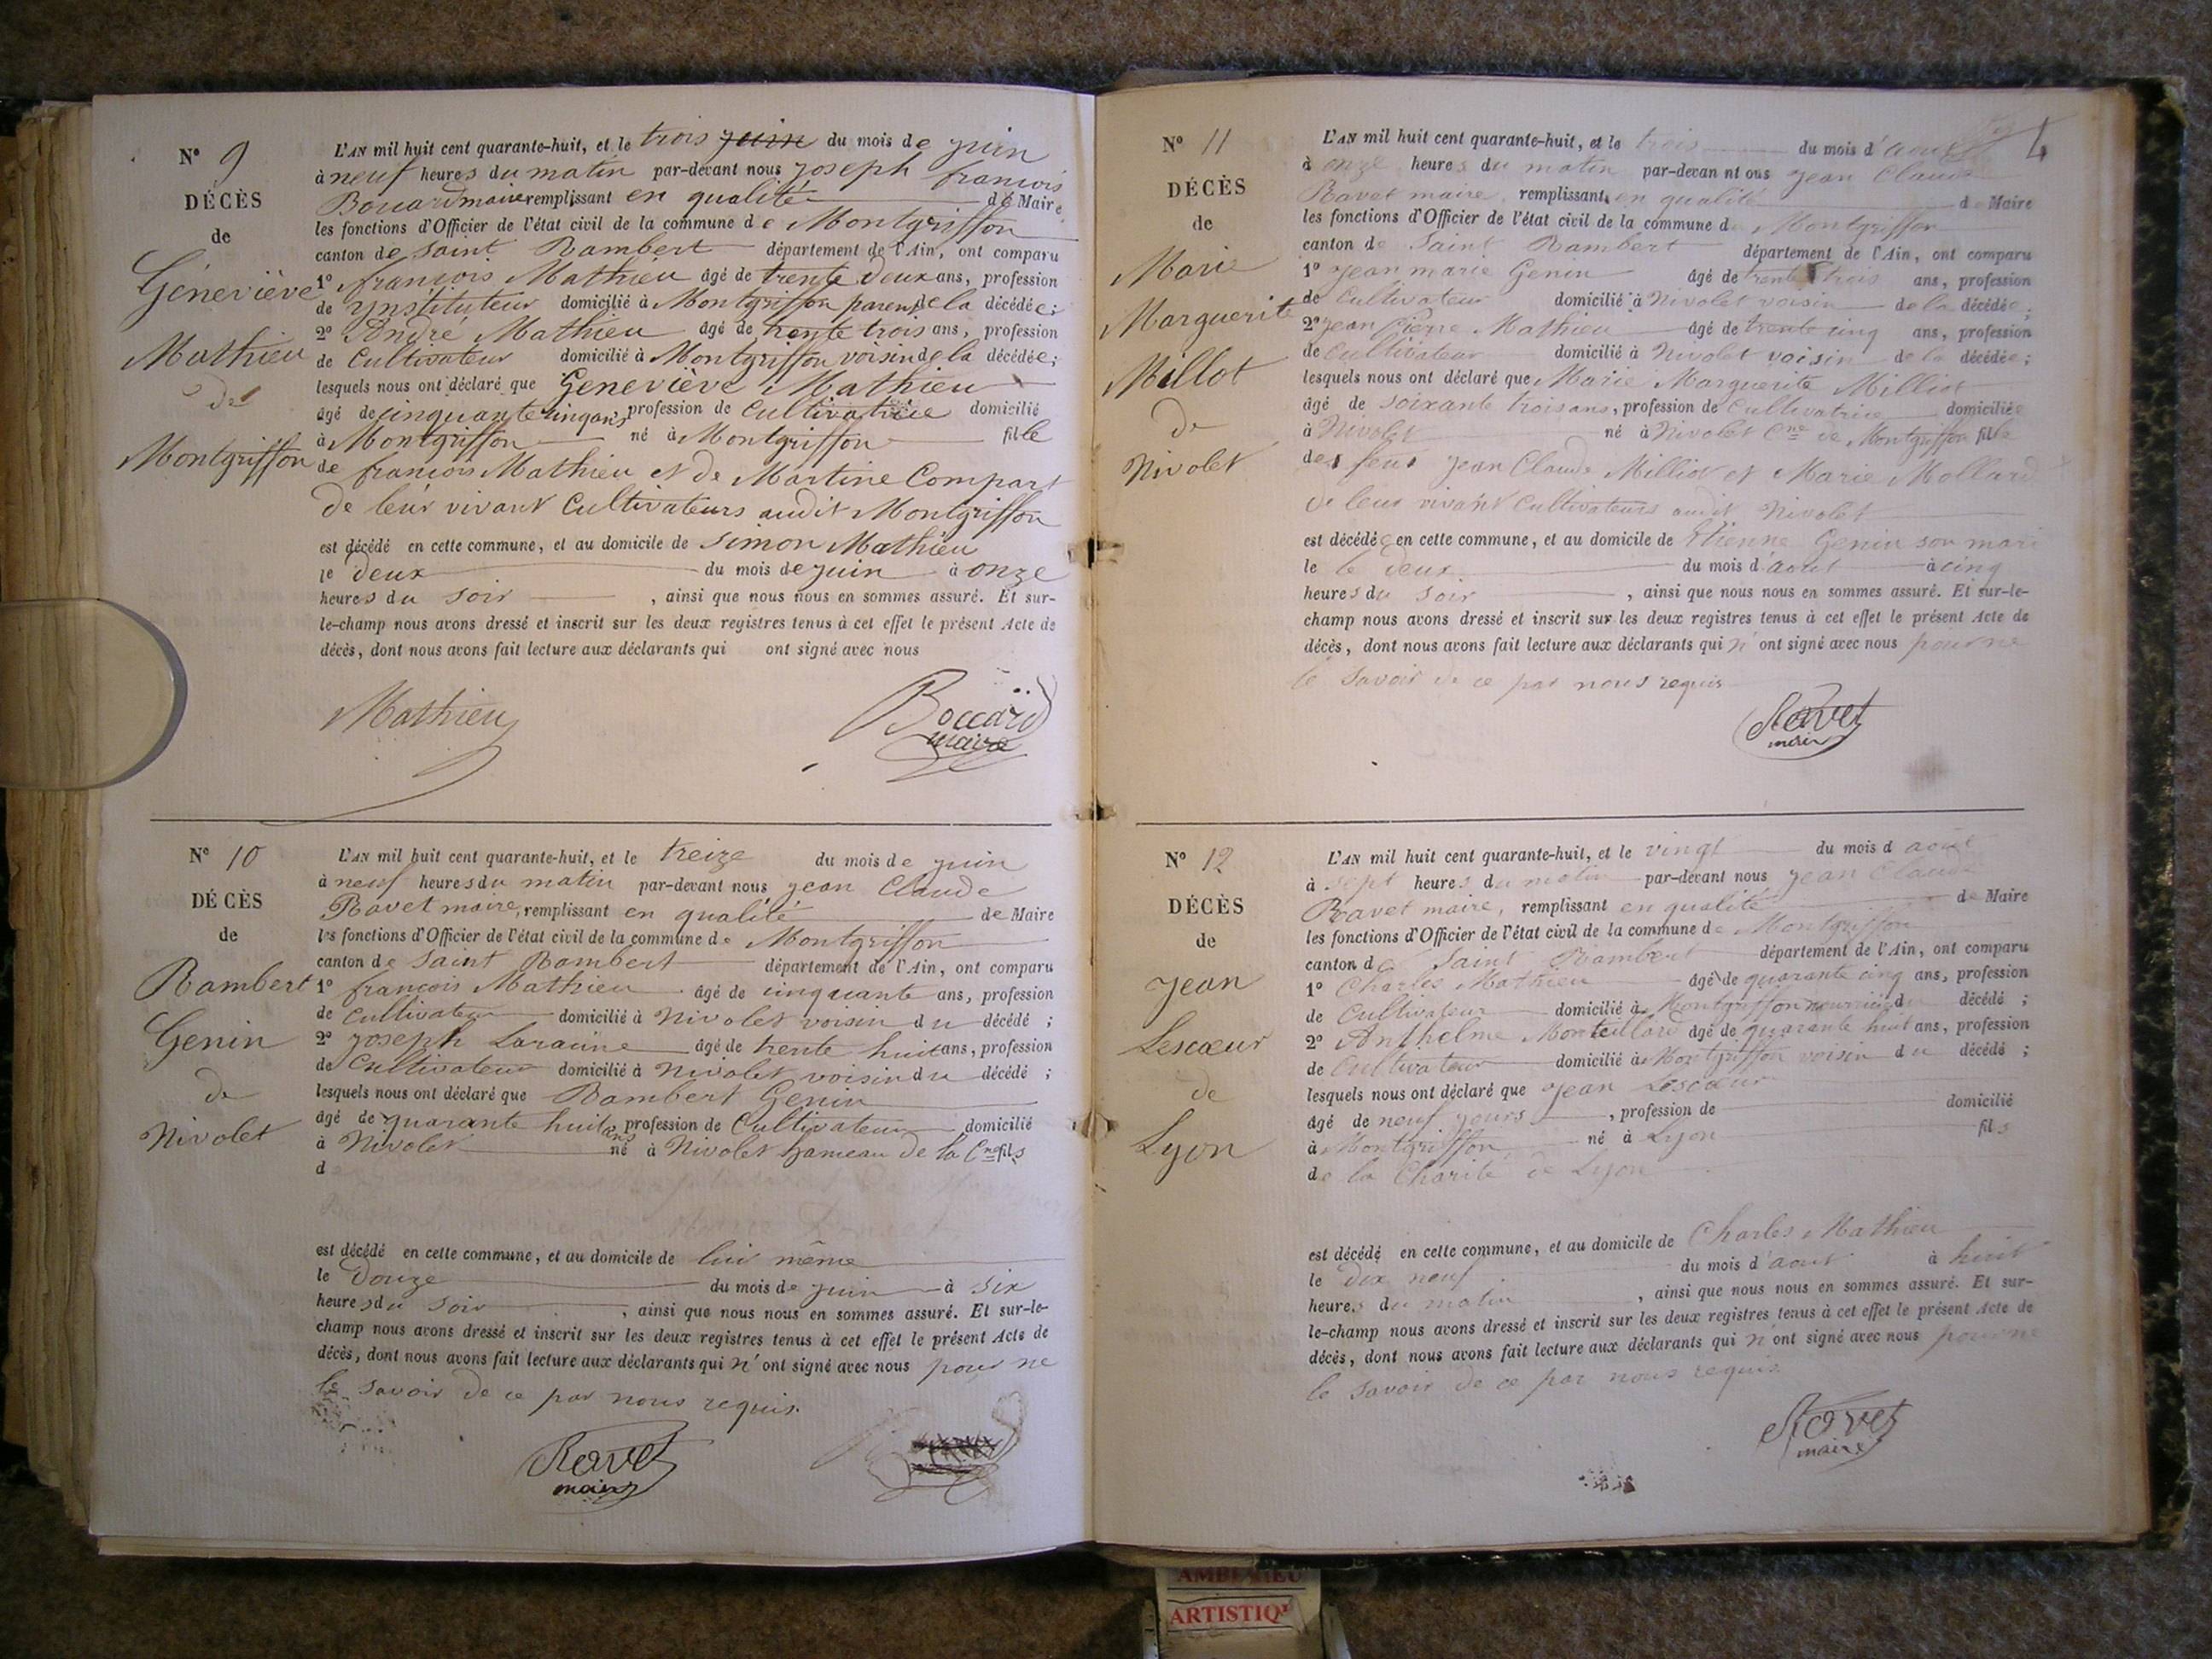 N° 9
DÉCÈS
de
Géneviève
Mathieu
de
Montgriffon
L'AN mil huit cent quarante-huit, et le trois juin du mois de juin
à neuf heures du matin par-devant nous joseph francois
Bouard maire remplissant en qualité de Maire
les fonctions d'Officier de l'état civil de la commune de Montgriffon
canton de Saint Rambert département de l'Ain, ont comparu
1° francois Mathieu âgé de trente deux ans, profession
de ynstituteur domicilié à Montgriffon parent de la décédée;
2° André Mathieu âgé de trente trois ans, profession
de Cultivateur domicilié à Montgriffon voisin de la décédée;
lesquels nous ont déclaré que Geneviève Mathieu
âgé de cinquante cinq ans, profession de Cultivatrice domicilié
à Montgriffon né à Montgriffon fille
de francois Mathieu et de Martine Compart
de leur vivant Cultivateurs audit Montgriffon
est décédé en cette commune, et au domicile de Simon Mathieu
le deux du mois de juin à onze
heures du soir , ainsi que nous nous en sommes assuré. Et sur-
le-champ nous avons dressé et inscrit sur les deux registres tenus à cet effet le présent Acte de
décès, dont nous avons fait lecture aux déclarants qui ont signé avec nous
Mathieu
Boccard
maire
N° 10
DÉCÈS
de
Rambert
Genin
de
Nivolet
L'AN mil huit cent quarante-huit, et le treize du mois de juin
à neuf heures du matin par-devant nous jean Claude
Ravet maire, remplissant en qualité de Maire
les fonctions d'Officier de l'état civil de la commune de Montgriffon
canton de Saint Rambert département de l'Ain, ont comparu
1° francois Mathieu âgé de cinquante ans, profession
de Cultivateur domicilié à Nivolet voisin du décédé ;
2° joseph âgé de trente huit ans, profession
de Cultivateur domicilié à Nivolet voisin du décédé ;
lesquels nous ont déclaré que Rambert Genin
âgé de quarante huit ans, profession de Cultivateur domicilié
à Nivolet né à Nivolet hameau de la Cne fils
d
est décédé en cette commune, et au domicile de lui même
le Douze du mois de juin à six
heures du soir , ainsi que nous nous en sommes assuré. Et sur-le-
champ nous avons dressé et inscrit sur les deux registres tenus à cet effet le présent Acte de
décès, dont nous avons fait lecture aux déclarants qui n'ont signé avec nous pour ne
le savoir de ce par nous requis.
Ravet
maire
4
N° 11
DÉCÈS
de
Marie
Marguerite
Millot
de
Nivolet
L'AN mil huit cent quarante-huit, et le trois du mois d'aout
à onze heures du matin par-devan nt ous jean Claude
Ravet maire, remplissant en qualité de Maire
les fonctions d'Officier de l'état civil de la commune de Montgriffon
canton de Saint Rambert département de l'Ain, ont comparu
1° jean marie Genin âgé de trente trois ans, profession
de Cultivateur domicilié à Nivolet voisin de la décédée;
2° jean Pierre Mathieu âgé de trente cinq ans, profession
de Cultivateur domicilié à Nivolet voisin de la décédée;
lesquels nous ont déclaré que Marie Marguerite Milliot
âgé de soixante trois ans, profession de Cultivatrice domiciliée
à Nivolet né à Nivolet Cne de Montgriffon fille
des feus jean Claude Milliot et Marie Mollard
de leur vivant Cultivateurs audit Nivolet
est décédée en cette commune, et au domicile de Etienne Genin son mari
le le deux du mois d'aout à cinq
heures du soir , ainsi que nous nous en sommes assuré. Et sur-le-
champ nous avons dressé et inscrit sur les deux registres tenus à cet effet le présent Acte de
décès, dont nous avons fait lecture aux déclarants qui n'ont signé avec nous pour ne
le savoir de ce par nous requis
Ravet
maire
N° 12
DÉCÈS
de
jean
Lescœur
de
Lyon
L'AN mil huit cent quarante-huit, et le vingt du mois d aout
à sept heures du matin par-devant nous jean Claude
Ravet maire, remplissant en qualité de Maire
les fonctions d'Officier de l'état civil de la commune de Montgriffon
canton de Saint Rambert département de l'Ain, ont comparu
1° Charles Mathieu âgé de quarante cinq ans, profession
de Cultivateur domicilié à Montgriffon nourricier du décédé ;
2° Anthelme Monteillard âgé de quarante huit ans, profession
de Cultivateur domicilié à Montgriffon voisin du décédé ;
lesquels nous ont déclaré que jean Lescœur
âgé de neuf jours , profession de domicilié
à Montgriffon né à Lyon fils
de la Charité de Lyon
est décédé en cette commune, et au domicile de Charles Mathieu
le dix neuf du mois d'aout à huit
heures du matin , ainsi que nous nous en sommes assuré. Et sur-
le-champ nous avons dressé et inscrit sur les deux registres tenus à cet effet le présent Acte de
décès, dont nous avons fait lecture aux déclarants qui n'ont signé avec nous pour ne
le savoir de ce par nous requis.
Ravet
maire
ARTISTIQ